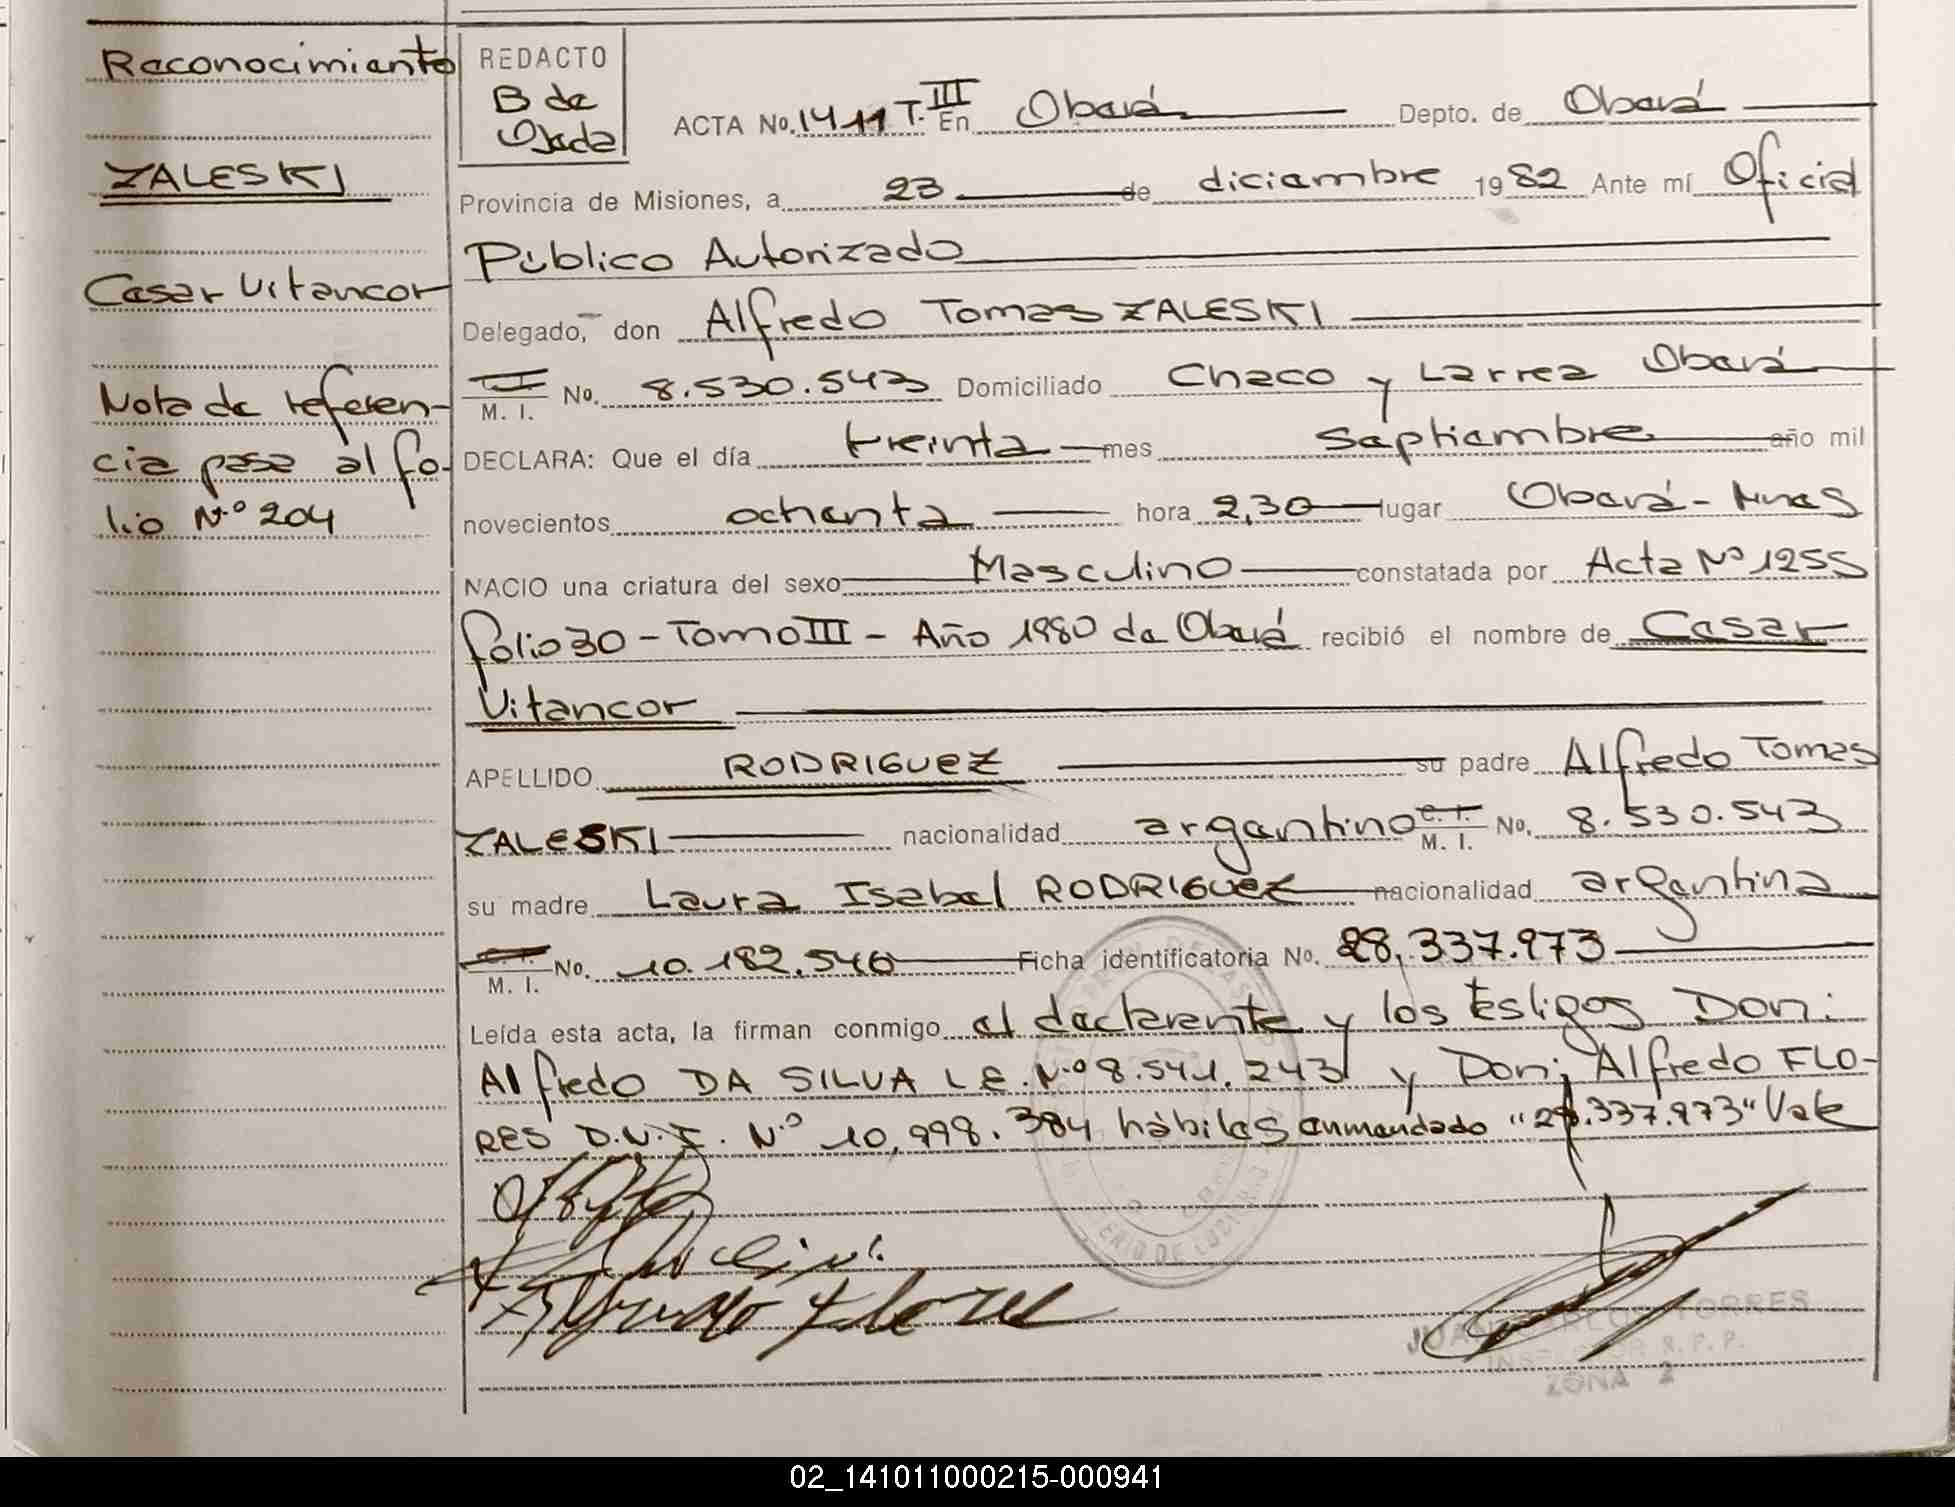 Reconocimiento
ZALESKI
Cesar Vitancor
Nota de referen-
cia pasa al fo-
lio Nº 204
REDACTO
B de
Ojeda
ACTA No. 1411 T. III En Oberá Depto. de Oberá
Provincia de Misiones, a 23 de diciembre 1982 Ante mí Oficial
Público Autorizado
Delegado, don Alfredo Tomas ZALESKI
M. I. No. 8.530.543 Domiciliado Chaco y Larrea Oberá
DECLARA: Que el día treinta mes septiembre año mil
novecientos ochenta hora 2,30 lugar Oberá - Mnes
NACIO una criatura del sexo Masculino constatada por Acta Nº 1255
folio 30 - Tomo III - Año 1980 de Oberá recibió el nombre de Cesar
Vitancor
APELLIDO RODRIGUEZ su padre Alfredo Tomas
ZALESKI nacionalidad argentino C. I. M. I. No. 8.530.543
su madre Laura Isabel RODRIGUEZ nacionalidad argentina
C. I. M. I. No. 10.182.546 Ficha identificatoria No. 28.337.973
Leída esta acta, la firman conmigo el declarante y los testigos Don:
Alfredo DA SILVA L.E. Nº 8.541.243 y Don: Alfredo FLO-
RES D.N.I. Nº 10.998.384 hábiles enmendado "28.337.973" Vale
Alfredo Flores
JUAN CARLOS TORRES
INSPECTOR R. P. P.
ZONA 2
02_141011000215-000941